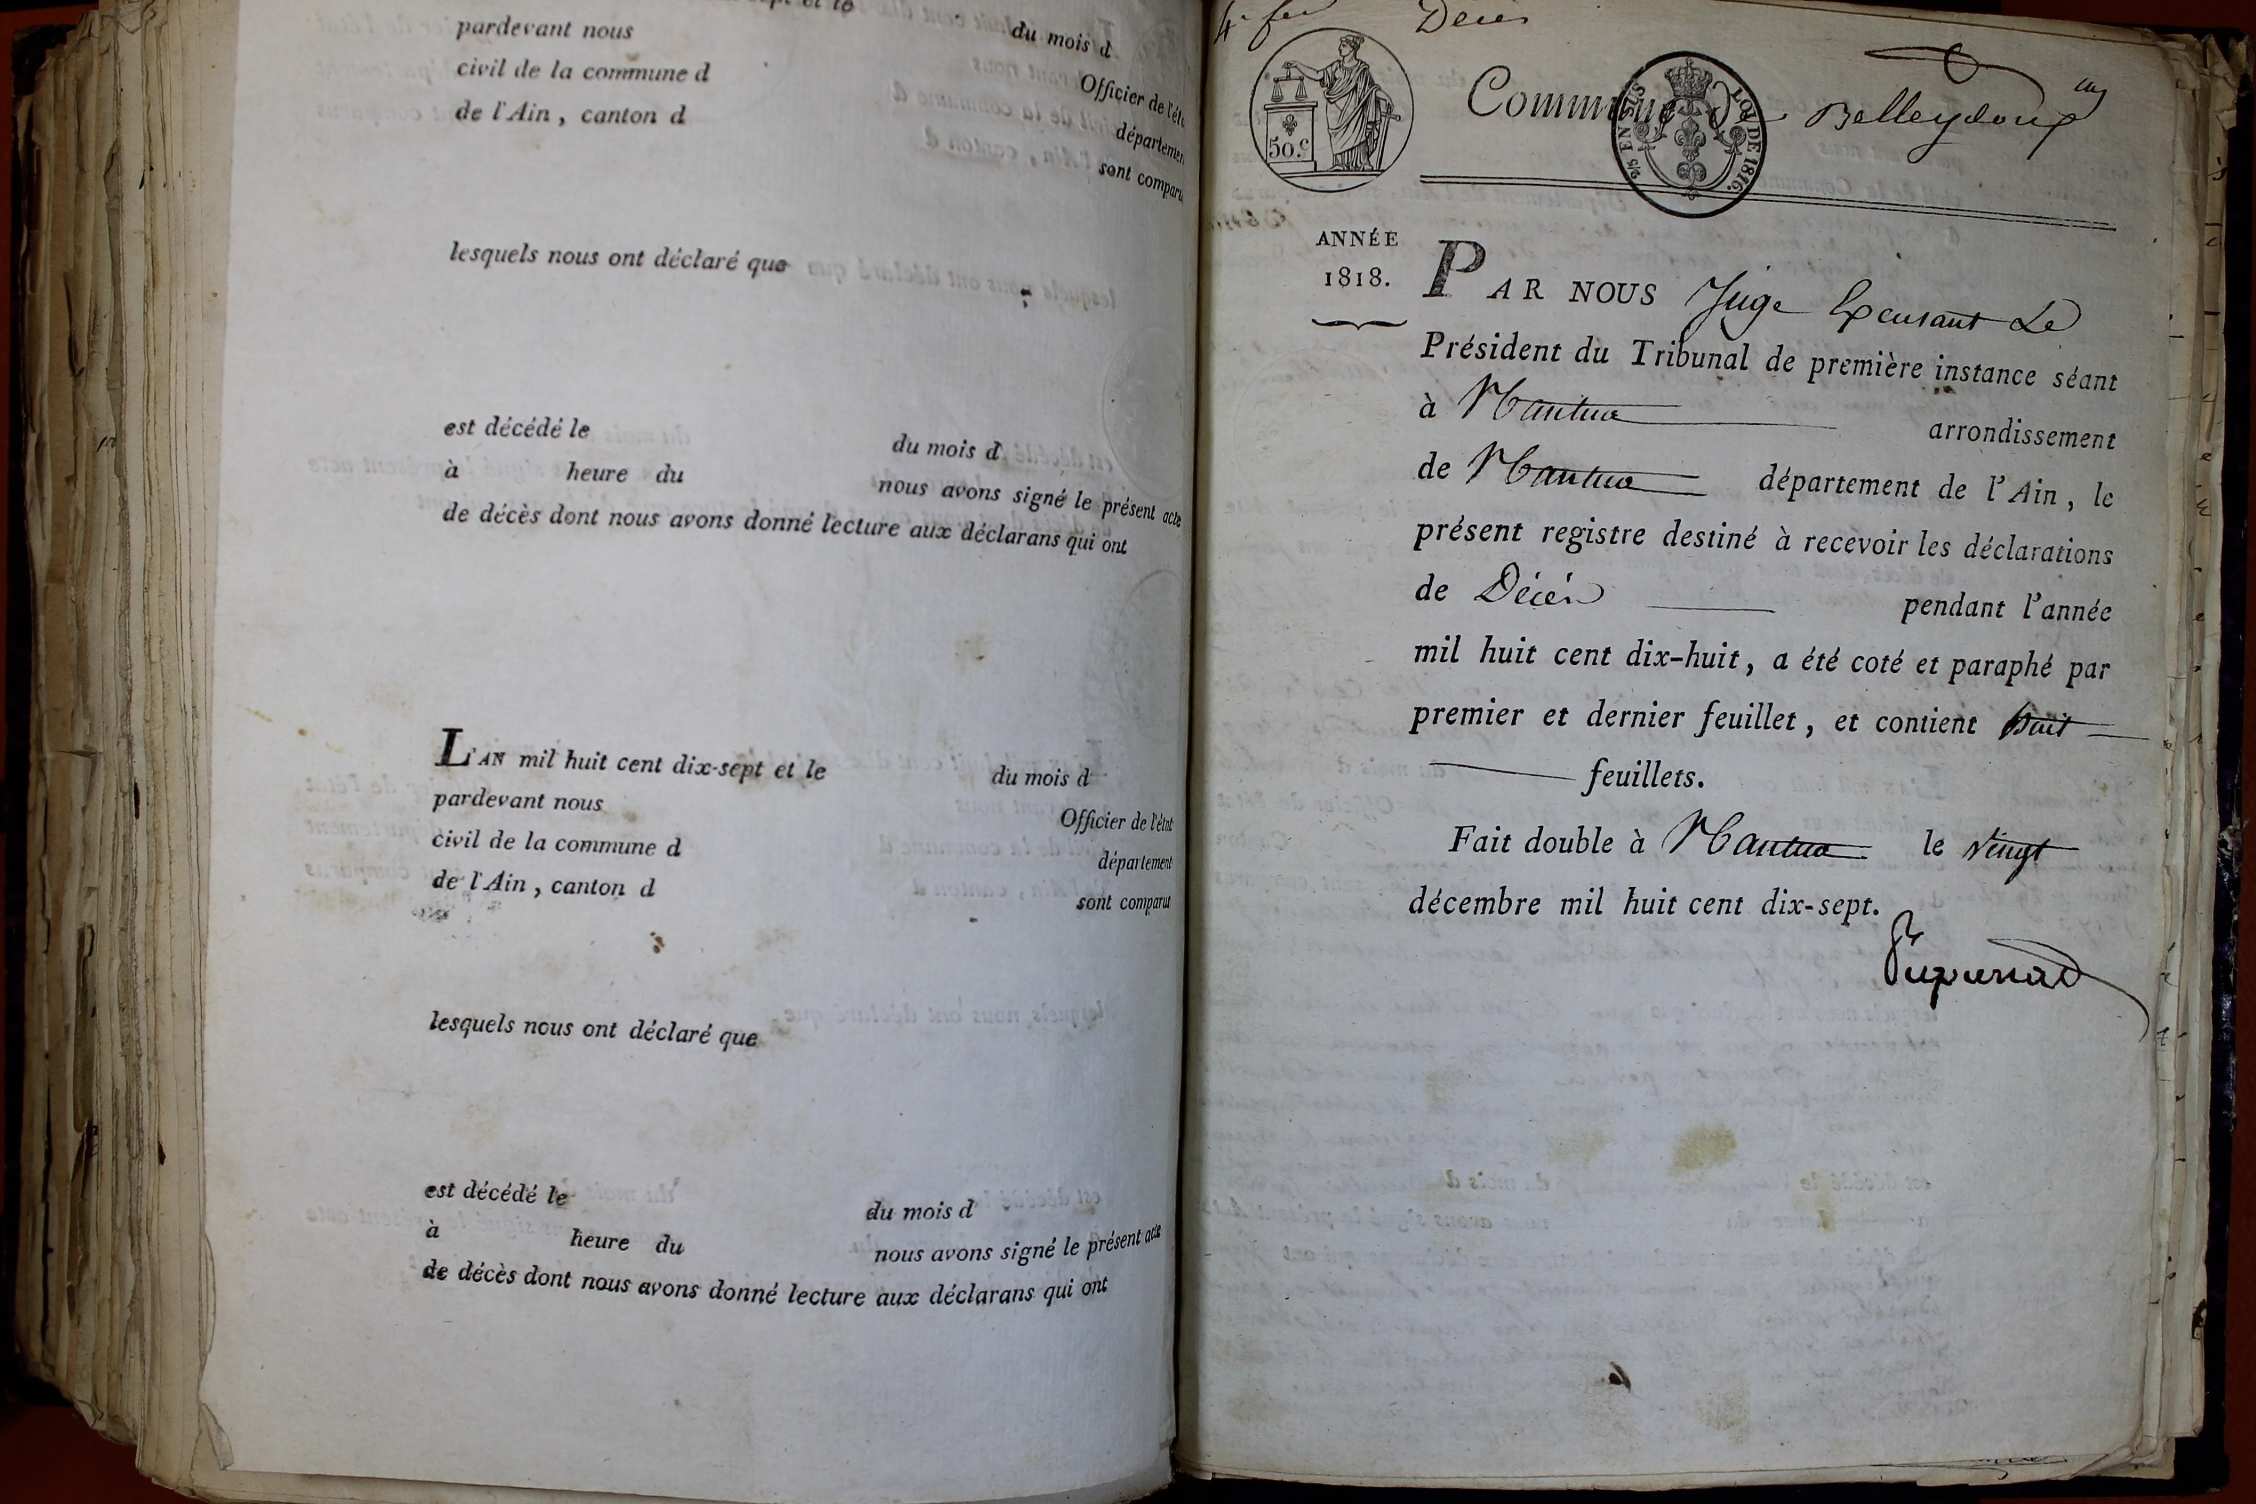 du mois d
pardevant nous
Officier de l'éta
civil de la commune d
département
de l'Ain, canton d
sont comparu
lesquels nous ont déclaré que
est décédé le du mois d
à heure du nous avons signé le présent acte
de décès dont nous avons donné lecture aux déclarans qui ont
L'AN mil huit cent dix-sept et le du mois d
pardevant nous Officier de l'état
civil de la commune d département
de l'Ain, canton d sont comparut
lesquels nous ont déclaré que
est décédé le du mois d
à heure du nous avons signé le présent acte
de décès dont nous avons donné lecture aux déclarans qui ont
Décès
50.c
EN SUS
LOI DE 1816.
Commune De Belleydoux
ANNÉE
1818.
PAR NOUS Juge Exerçant Le
Président du Tribunal de première instance séant
à Nantua arrondissement
de Nantua département de l'Ain, le
présent registre destiné à recevoir les déclarations
de Décès pendant l'année
mil huit cent dix-huit, a été coté et paraphé par
premier et dernier feuillet, et contient huit
feuillets.
Fait double à Nantua le vingt
décembre mil huit cent dix-sept.